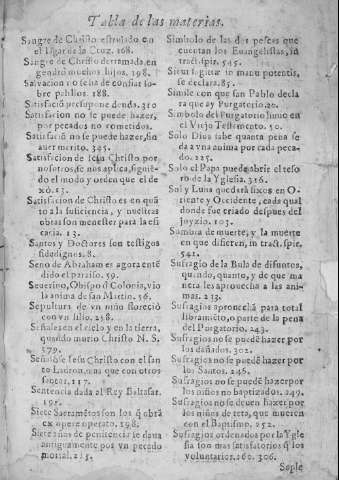 Tabla de las materias.
Sangre de Christo estrujado en
el lagar de la Cruz. 168.
Sangre de Christo derramada, en
gendrò muchos hijos. 198.
Salvacion no se ha de confiar so-
bre palillos. 188.
Satisfaciō presupone deuda. 310
Satisfacion no se puede hazer,
por pecados no cometidos.
Satisfaciō no se puede hazer, sin
auer merito. 345.
Satisfacion de Iesu Christo por
nosotros, se nos aplica, siguiē-
do el modo y orden que el de
xò. 13.
Satisfacion de Christo es en quā
to a la suficiencia, y nuestras
obras son menester para la efi
cacia. 13.
Santos y Doctores son testigos
fidedignos. 8.
Seno de Abraham es agora entē
dido el paraiso. 59.
Seuerino, Obispo d Colonia, vio
la anima de san Martin. 56.
Sepultura de vn niño floreciò
con vn silio. 258.
Señales en el cielo y en la tierra,
quando murio Christo N. S.
379.
Señal de Iesu Christo con el san
to Ladron, una que con otros
santos. 217.
Sentencia dada al Rey Baltasar.
195.
Siete Sacramētos son los q̄ obrā
ex opere operato. 198.
Siete años de penitencia se daua
antiguamente por vn pecado
mortal. 215.
Simbolo de las dos peseas que
cuentan los Euangelistas, in
tract. spir. 545.
Sicut sagittæ in manu potentis,
se declara. 85.
Simile con que san Pablo decla
ra que ay Purgatorio. 20.
Simbolo del Purgatorio huuo en
el Viejo Testamento. 50.
Solo Dios sabe quanta pena se
da a vna anima por cada peca-
do. 225.
Solo el Papa puede abrir el teso
ro de la Yglesia. 316.
Sol y Luna quedarà fixos en O-
riente y Occidente, cada qual
donde fue criado despues del
juyzio. 103.
Sombra de muerte, y la muerte
en que difieren, in tract. spir.
541.
Sufragio de la Bula de difuntos,
quando, quanto, y de que ma
nera les aprouecha a las ani-
mas. 233.
Sufragios aprouechā para total
libramiēto, o parte de la pena
del Purgatorio. 243.
Sufragios no se puedē hazer por
los dañados. 302.
Sufragios no se puedē hazer por
los Santos. 246.
Sufragios no se puedē hazer por
los niños no baptizados. 249.
Sufragios no se deuen hazer por
los niños de teta, que mueren
con el Baptismo. 252.
Sufragios ordenados por la Ygle
sia son mas satisfatorios q̄ los
voluntarios. 260. 306.
Suple